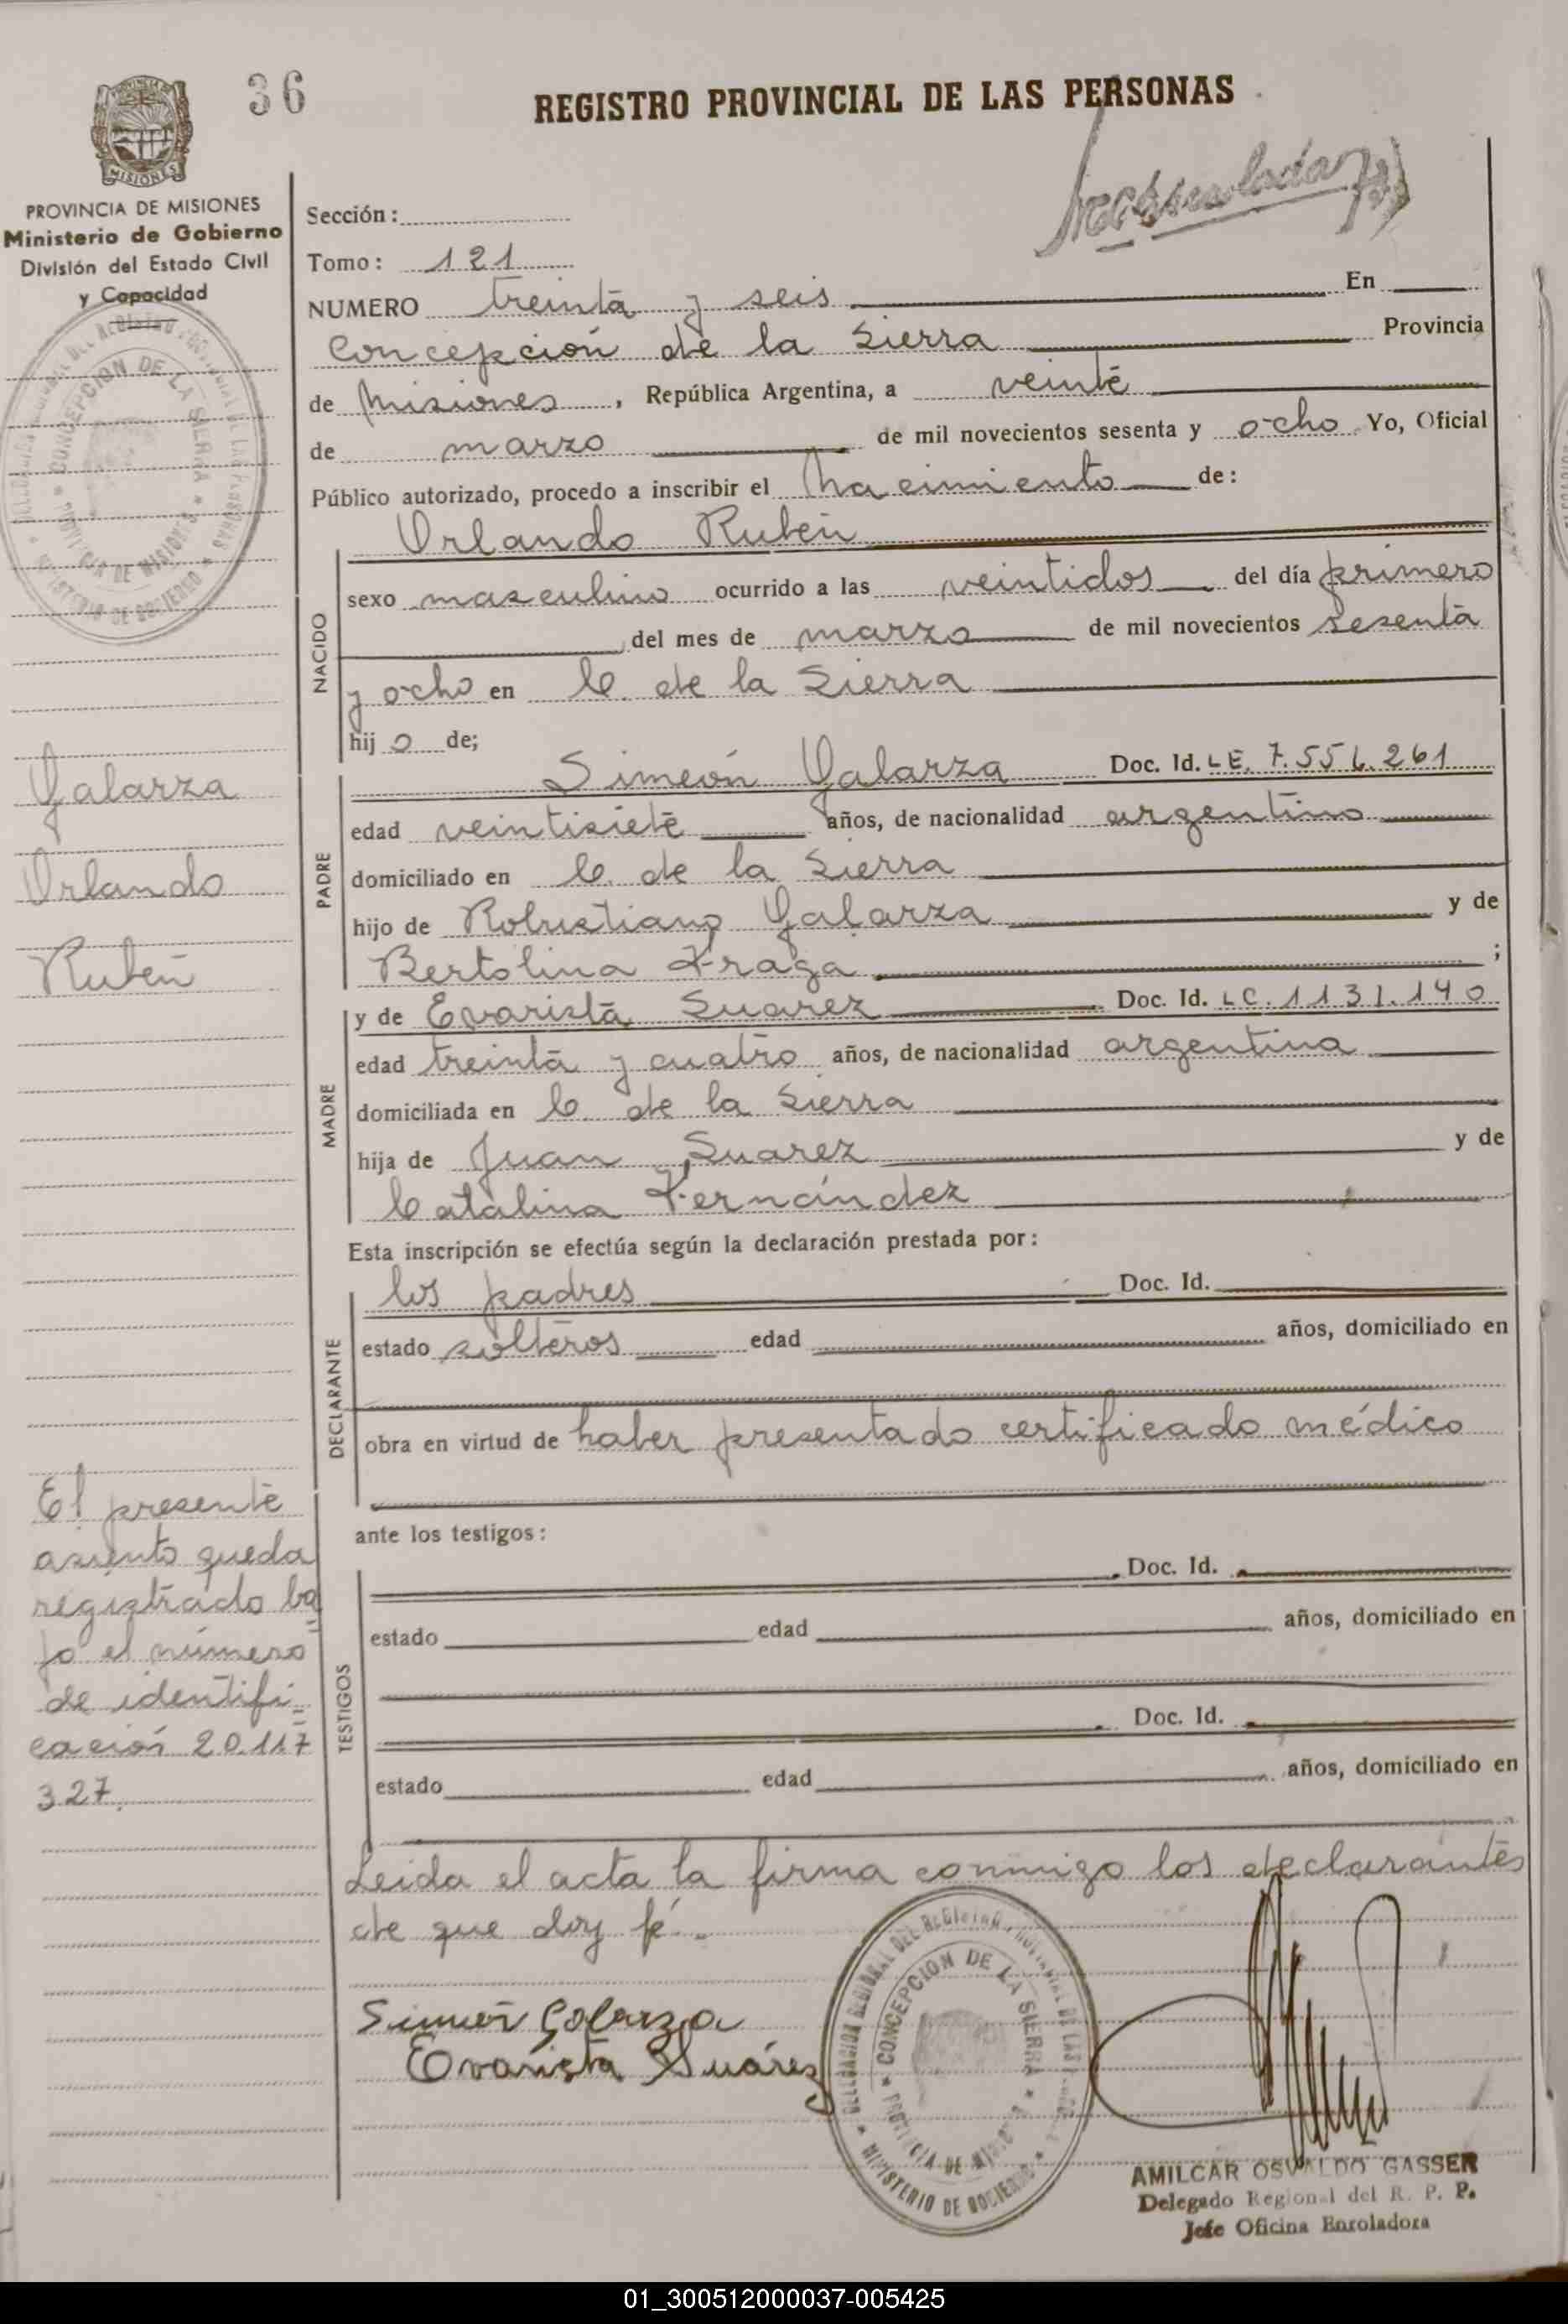 36
REGISTRO PROVINCIAL DE LAS PERSONAS
PROVINCIA DE MISIONES
Ministerio de Gobierno
División del Estado Civil
y Capacidad
Sección:
Tomo: 121
NUMERO treinta y seis En
Concepción de la Sierra Provincia
de Misiones, República Argentina, a veinte
de marzo de mil novecientos sesenta y ocho Yo, Oficial
Público autorizado, procedo a inscribir el Nacimiento de:
Orlando Rubén
NACIDO
sexo masculino ocurrido a las veintidos del día primero
del mes de marzo de mil novecientos sesenta
y ocho en C. de la Sierra
hijo de;
PADRE
Simeón Galarza Doc. Id. LE. 7.556.261
edad veintisiete años, de nacionalidad argentino
domiciliado en C. de la Sierra
hijo de Robustiano Galarza y de
Bertolina Fraga ;
MADRE
y de Evarista Suarez Doc. Id. LC. 1131.140
edad treinta y cuatro años, de nacionalidad argentina
domiciliada en C. de la Sierra
hija de Juan Suarez y de
Catalina Fernández
Esta inscripción se efectúa según la declaración prestada por:
DECLARANTE
los padres Doc. Id.
estado solteros edad años, domiciliado en
obra en virtud de haber presentado certificado médico
ante los testigos:
TESTIGOS
Doc. Id.
estado edad años, domiciliado en
Doc. Id.
estado edad años, domiciliado en
Leida el acta la firma conmigo los declarantes
de que doy fé.
Simeón Galarza
Evarista Suárez
CONCEPCION DE LA SIERRA
PROVINCIA DE MISIONES
MINISTERIO DE GOBIERNO
AMILCAR OSVALDO GASSER
Delegado Regional del R. P. P.
Jefe Oficina Enroladora
Galarza
Orlando
Rubén
El presente
asiento queda
registrado ba
jo el número
de identifi
cación 20.117
327.
01_300512000037-005425